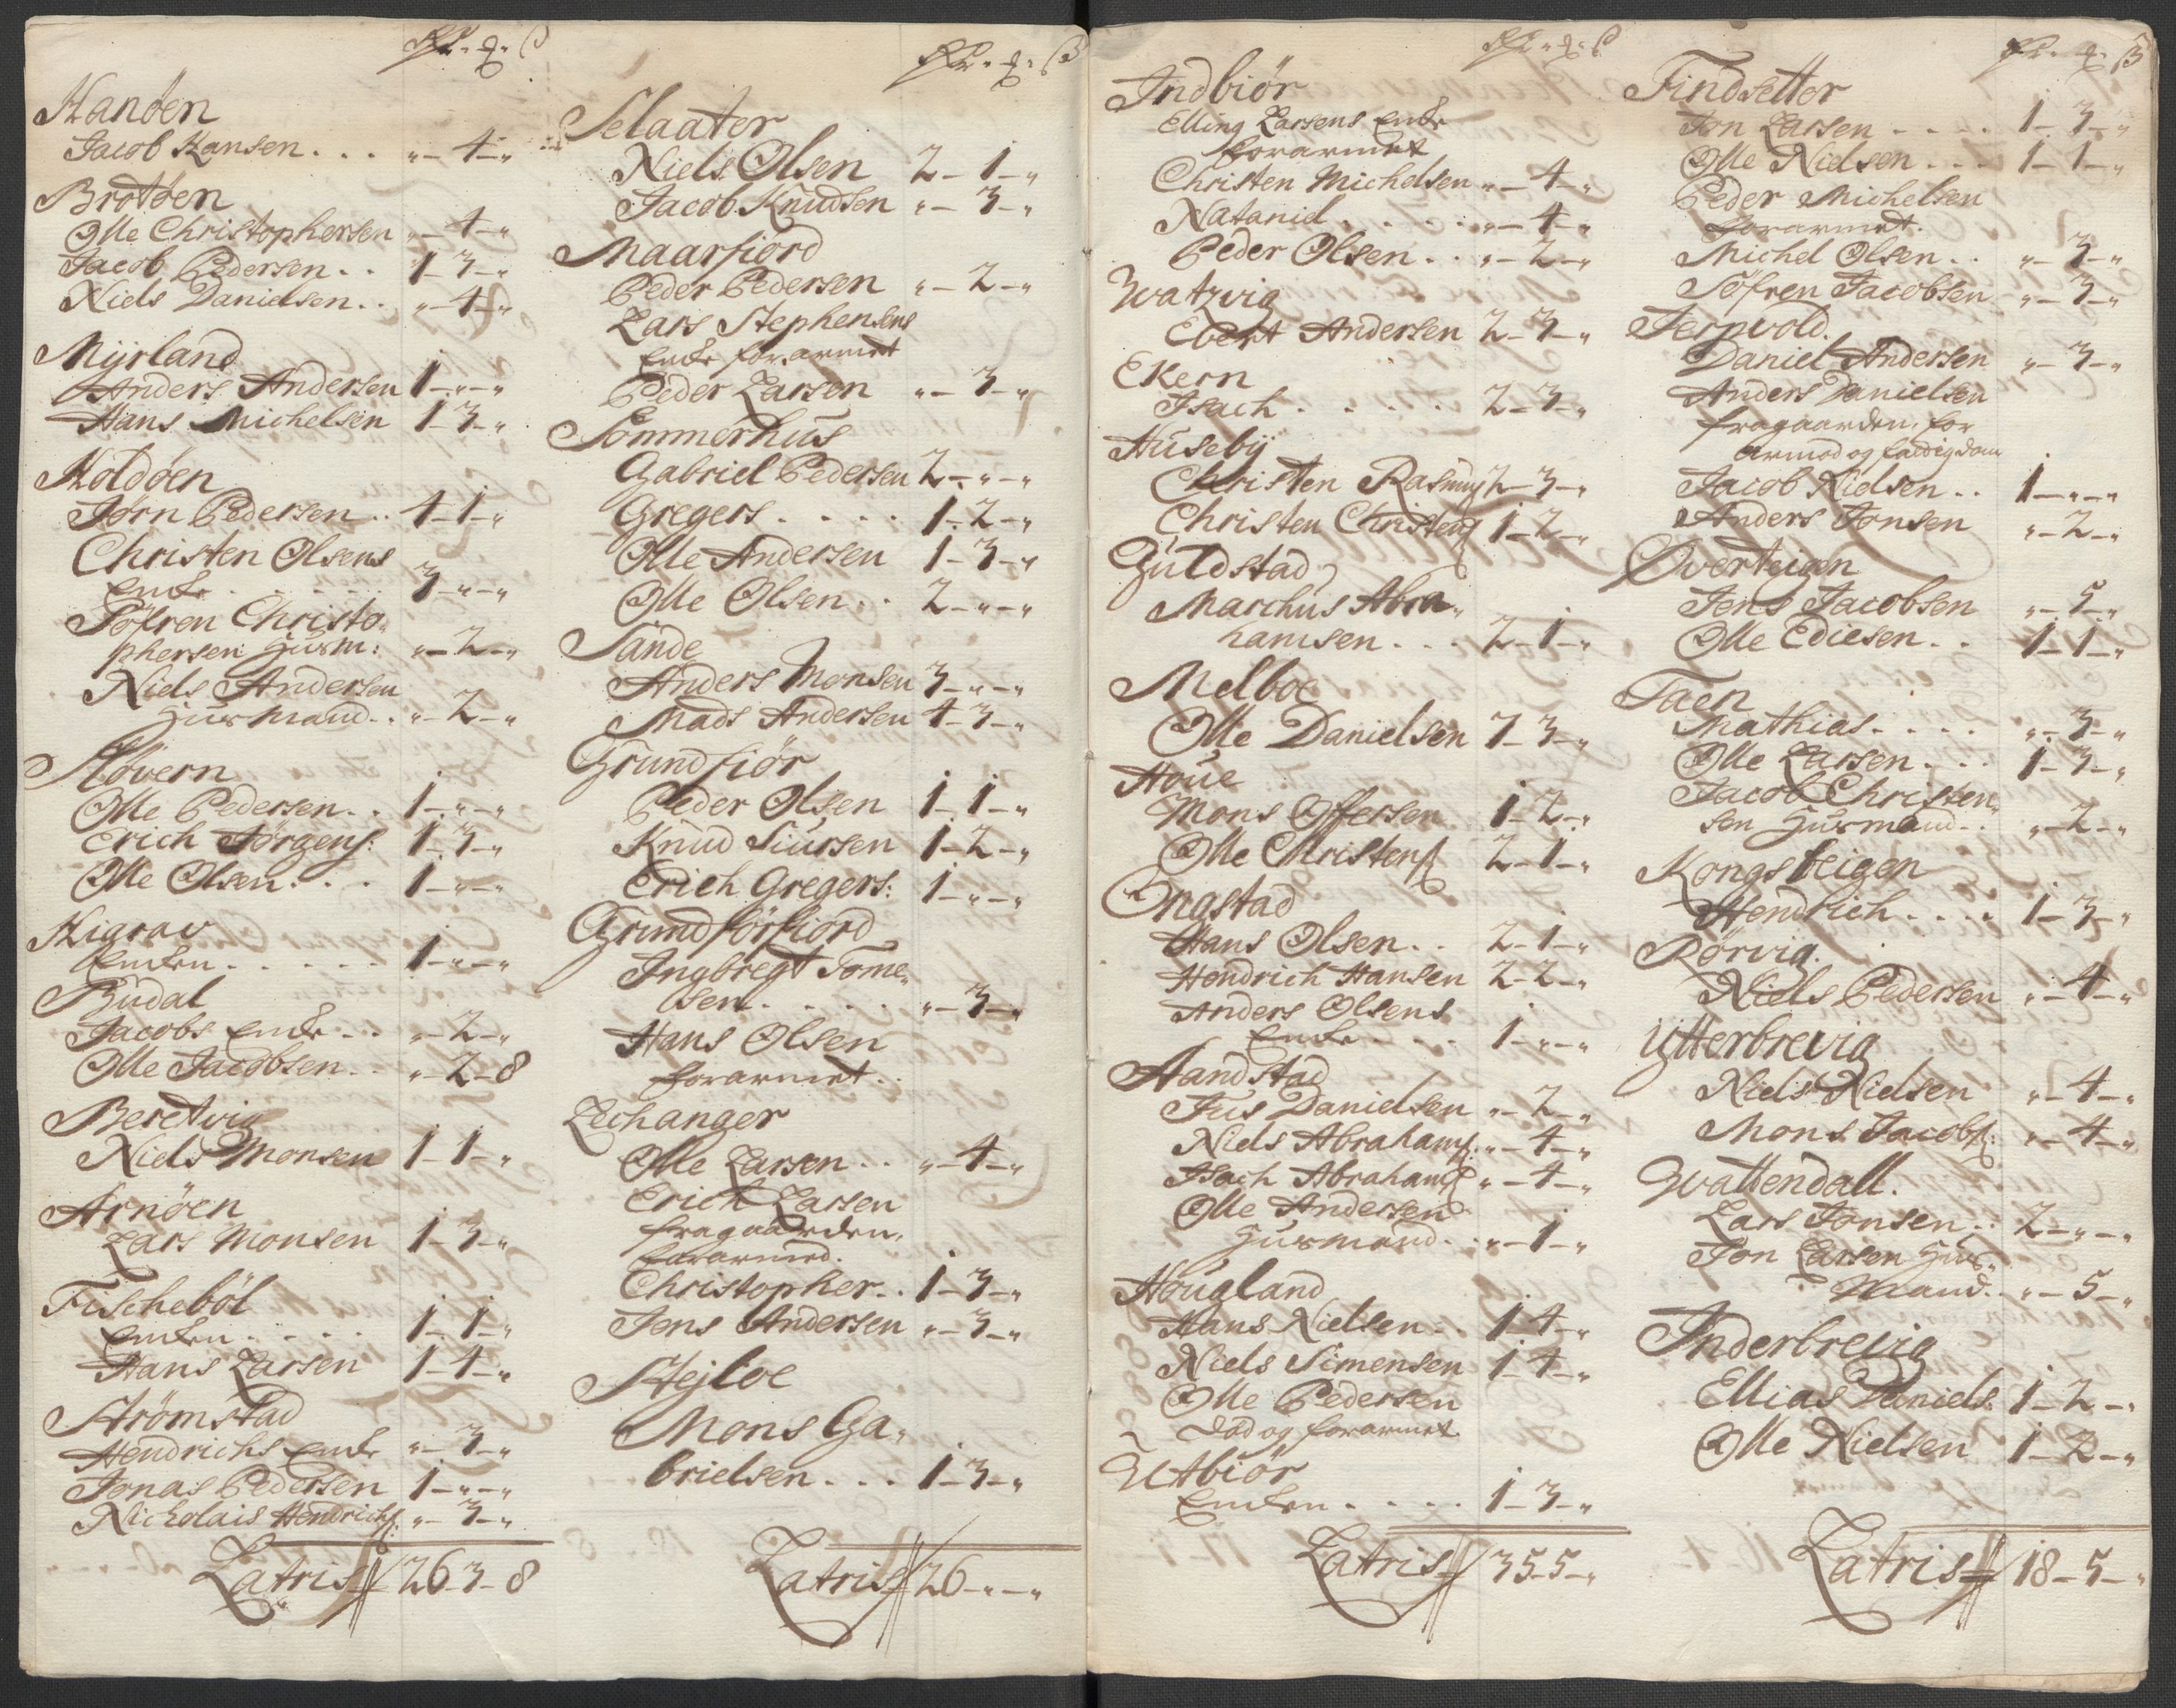 Hanöen
Jacob Hansen . . . „ – 4 – „
Brotöen
Olle Christophersen „ – 4 – „
Jacob Pedersen . . 1 – 3 – „
Niels Danielsen . . „ – 4 – „
Mÿrland
Anders Andersen 1 – „ – „
Hans Michelsen 1 – 3 – „
Holdöen
Jörn Pedersen . . 4 – 1 – „
Christen Olsens
Encke . . . 3 – „ – „
Söfren Christo„
phersen Husm: „ – 2 – „
Niels Andersen
Husmand . . „ – 2 – „
Hövern
Olle Pedersen . . 1 – „ – „
Erich Jörgens: 1 – 3 – „
Olle Olsen . . . 1 – „ – „
Higrav
Encken . . . . . 1 – „ – „
Budal
Jacobs Encke . . „ – 2 – „
Olle Jacobsen . . „ – 2 – 8
Beretvig
Niels Monsen 1 – 1 – „
Arnöen
Lars Monsen 1 – 3 – „
Fischeböl
Encken . . . . 1 – 1 – „
Hans Larsen 1 – 4 – „
Strömstad
Hendrichs Encke „ – 3 – „
Jonas Pedersen 1 – „ – „
Nicholais Hendrichs: „ – 3 – „
Latris 26 – 3 – 8
Selaater
Niels Olsen 2 – 1 – „
Jacob Knudsen „ – 3 – „
Maarfiord
Peder Pedersen „ – 2 – „
Lars Stephensens
Encke forarmet
Peder Larsen „ – 3 – „
Sommerhus
Gabriel Pedersen 2 – „ – „
Gregers . . . . 1 – 2 – „
Olle Andersen 1 – 3 – „
Olle Olsen . . 2 – „ – „
Sande
Anders Monsen 3 – „ – „
Mads Andersen 4 – 3 – „
Grundfiör
Peder Olsen 1 – 1 – „
Knud Siursen 1 – 2 – „
Erich Gregers: 1 – „ – „
Grundförfiord
Ingbregt Tome„
sen . . . . . „ – 3 – „
Hans Olsen
forarmet . .
Lechanger
Olle Larsen . . „ – 4 – „
Erich Larsen
fragaarden,
forarmed.
Christopher . . 1 – 3 – „
Jens Andersen „ – 3 – „
Stejloe
Mons Ga„
brielsen . . . 1 – 3 – „
Latris 26 – „ – „
Indbiör
Elling Larsens Encke
forarmet
Christen Michelsen „ – 4 – „
Nataniel . . . . „ – 4 – „
Peder Olsen . . „ – 2 – „
Watzvig
Ebert Andersen 2 – 3 – „
Ekern
Isach . . . . . 2 – 3 – „
Husebÿ
Christen Rasmus 2 – 3 – „
Christen Christens 1 – 2 – „
Guldstad
Marchus Abra„
hamsen . . . 2 – 1 – „
Melboe
Olle Danielsen 7 – 3 – „
Houe
Mons Offersen 1 – 2 – „
Olle Christens 2 – 1 – „
Ongstad
Hans Olsen . . 2 – 1 – „
Hendrich Hansen 2 – 2 – „
Anders Olsens
Encke . . . 1 – „ – „
Aandstad
Jus Danielsen „ – 2 – „
Niels Abrahams: „ – 4 – „
Isach Abrahams „ – 4 – „
Olle Andersen
Husmand . . „ – 1 – „
Hougland
Hans Nielsen . . 1 – 4 – „
Niels Simensen 1 – 4 – „
Olle Pedersen
död og forarmet.
Utbiör
Encken . . . . 1 – 3 – „
Latris 35 – 5 – „
Findsetter
Jon Larsen . . . . 1 – 3 – „
Olle Nielsen . . . 1 – 1 – „
Peder Michelsen
forarmet.
Michel Olsen . . „ – 3 – „
Söfren Jacobsen „ – 3 – „
Jerpvold.
Daniel Andersen „ – 3 – „
Anders Danielsen
fragaarden, for
armod og
Jacob Nielsen . . 1 – „ – „
Anders Jonsen „ – 2 – „
Overteigen
Jens Jacobsen „ – 5 – „
Olle Ediesen . . 1 – 1 – „
Taen
Mathias . . . . „ – 3 – „
Olle Larsen . . . 1 – 3 – „
Jacob Christen„
sen Husmand . . „ – 2 – „
Kongsteigen
Hendrich . . . . 1 – 3 – „
Rörvig.
Niels Pedersen „ – 4 – „
Ÿtterbrevig
Niels Nielsen „ – 4 – „
Mons Jacobs: „ – 4 – „
Qvattendall.
Lars Jonsen . . 2 – „ – „
Jon Larsen Hus„
mand . . „ – 5 – „
Inderbrevig
Ellias Daniels: 1 – 2 – „
Olle Nielsen 1 – 2 – „
Latris 18 – 5 – „